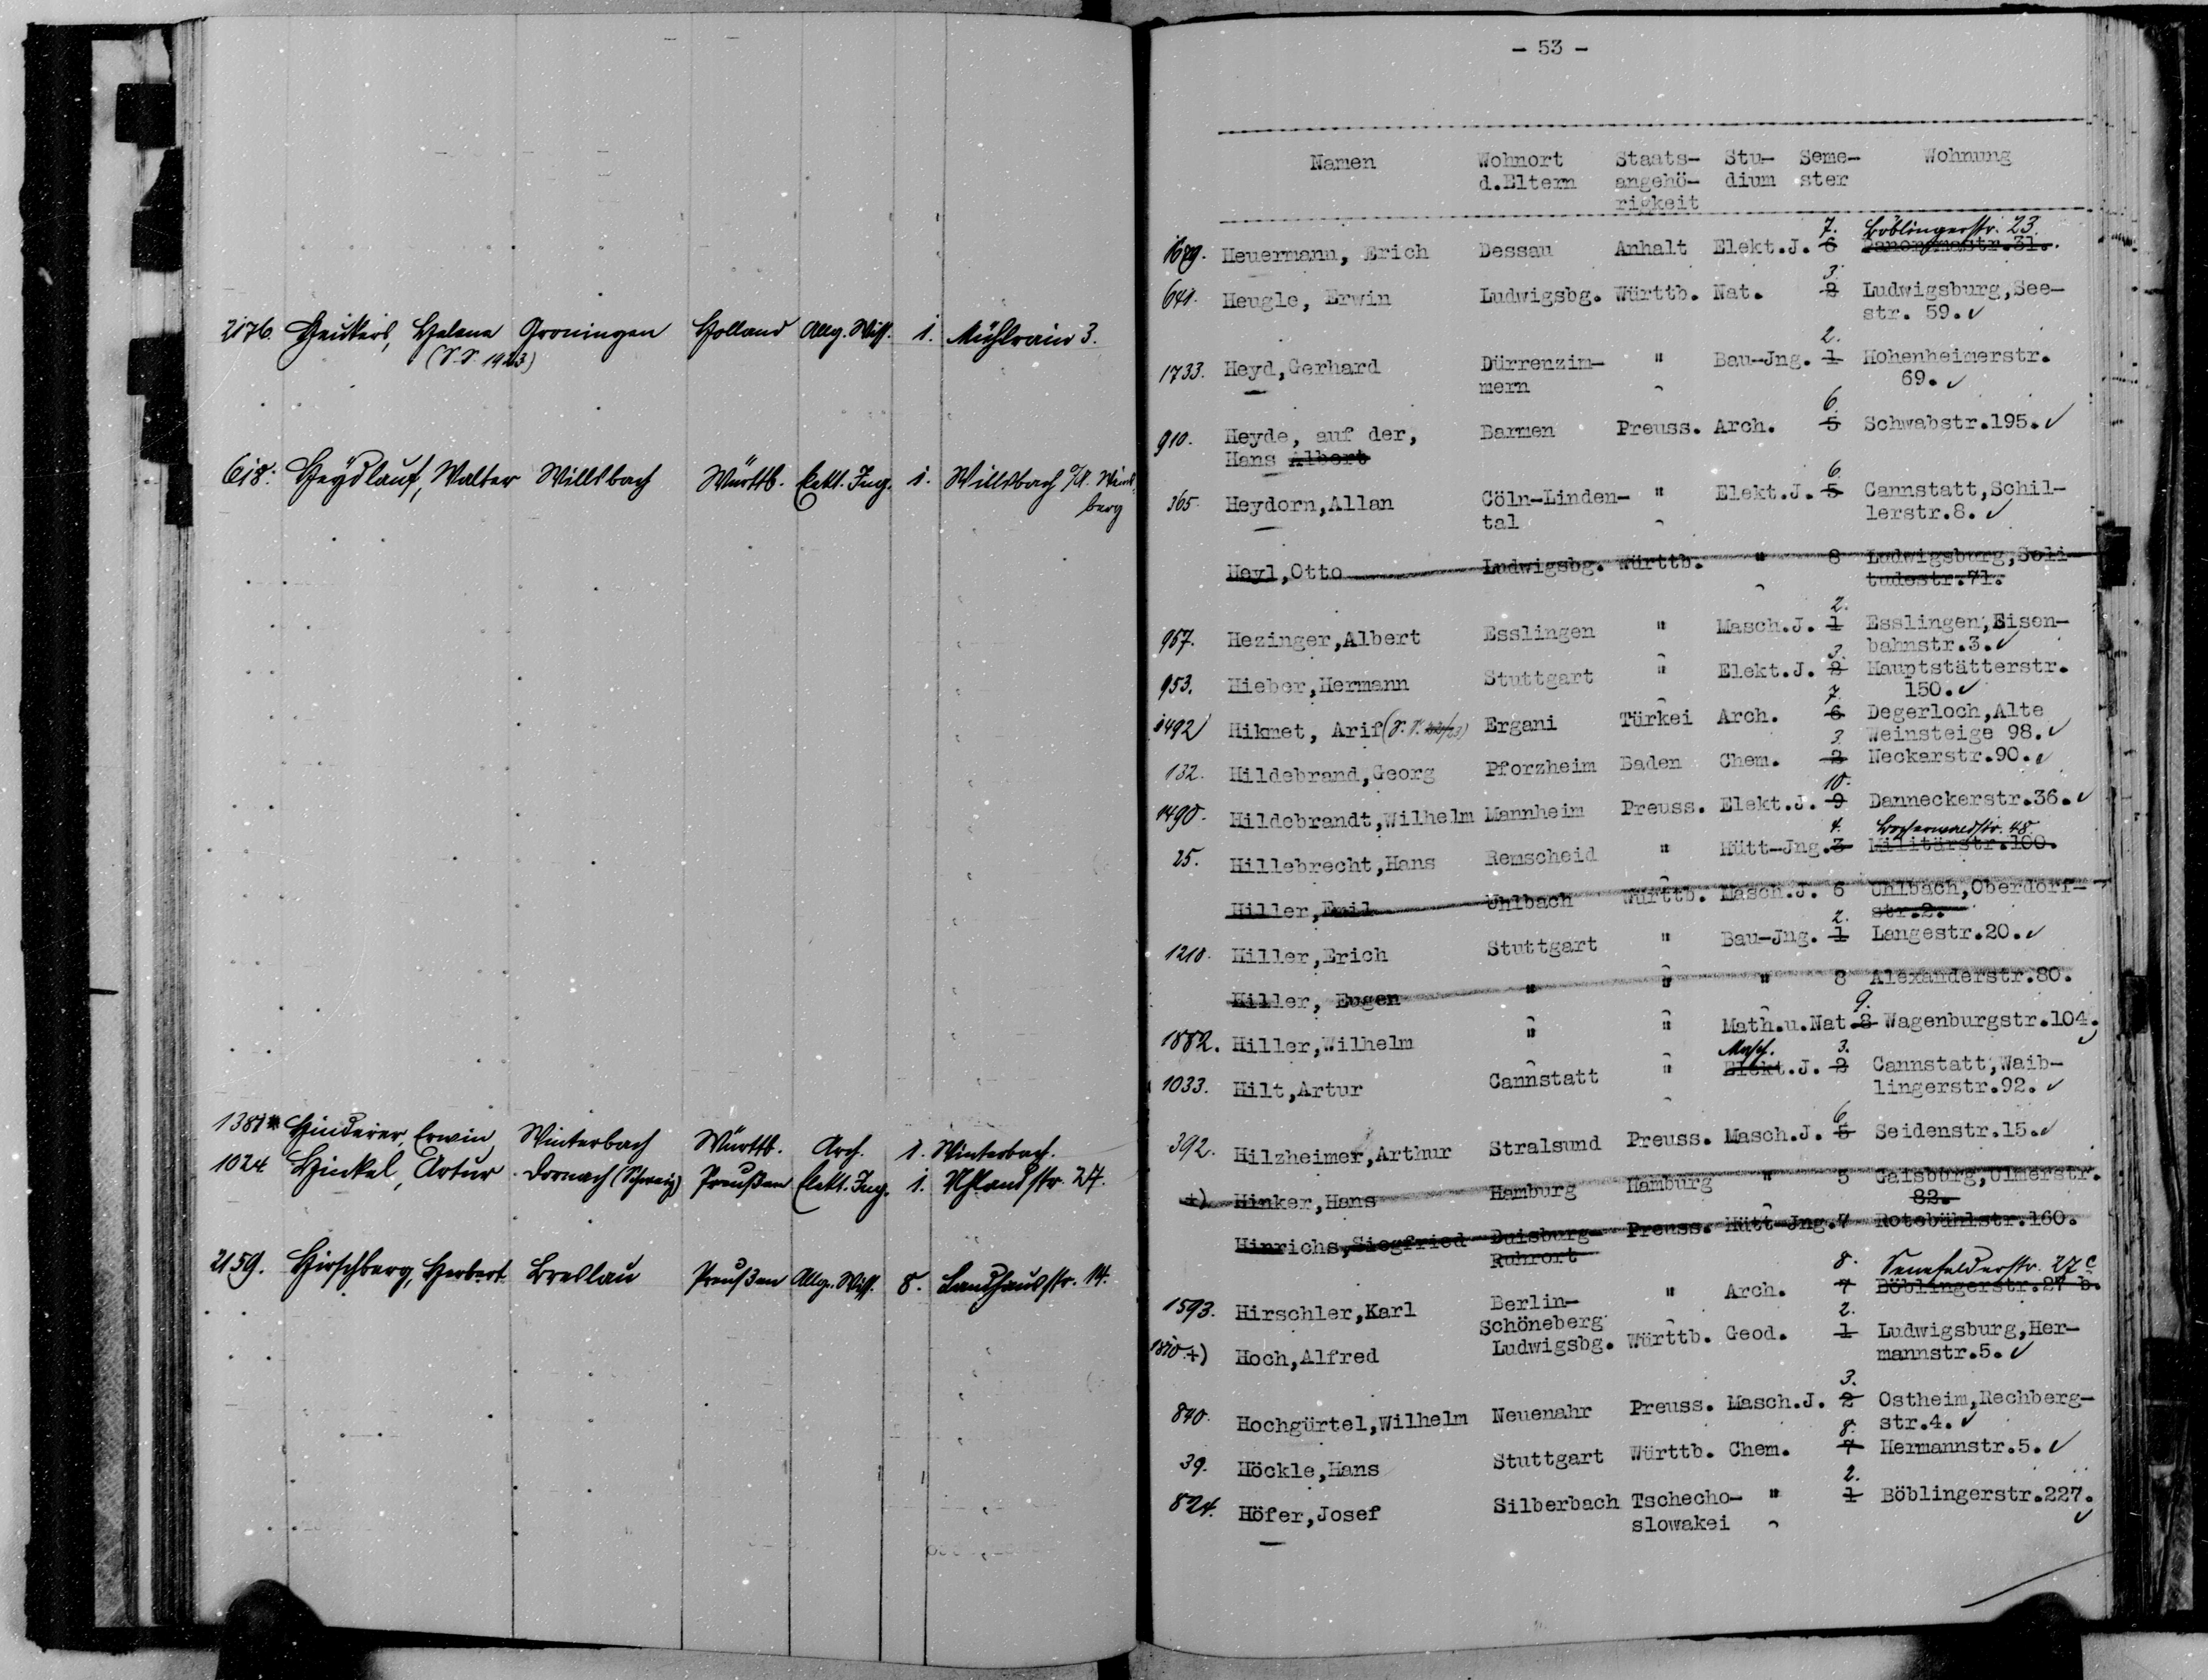 2176. Henkers, Helene Groningen Holland Allg. Wiss. 1. Mühlrain 3.
(S.S. 1923)
618. Heydlauf, Walter Willsbach Württb. Elekt. Ing. 1. Willsbach O/A. Weins-
berg
1381 Hinderer, Erwin Winterbach Württb. Arch. 1. Winterbach.
1024 Hinkel, Artur Dornach (Schweiz) Preußen Elekt. Ing. 1. Uhlandstr. 27.
2159. Hirschberg, Herbert Breslau Preußen Allg. Wiss. 8. Landhausstr. 14.
- 53 -
Namen Wohnort Staats- Stu- Seme- Wohnung
d.Eltern angehö- dium ster
rigkeit
7. Böblingerstr. 23.
1679. Heuermann, Erich Dessau Anhalt Elekt.J. 6 Panoramastr.31.
3.
641. Heugle, Erwin Ludwigsbg. Württb. Nat. 2 Ludwigsburg,See-
str. 59. ✓
2.
1733. Heyd,Gerhard Dürrenzim- " Bau-Jng. 1 Hohenheimerstr.
mern 69. ✓
6.
910. Heyde, auf der, Barmen Preuss. Arch. 5 Schwabstr.195. ✓
Hans Albert
6.
365. Heydorn,Allan Cöln-Linden- " Elekt.J. 5 Cannstatt,Schil-
tal lerstr.8. ✓
Heyl,Otto Ludwigsbg. Württb. " 8 Ludwigsburg,Soli-
tudestr.71.
2.
957. Hezinger,Albert Esslingen " Masch.J. 1 Esslingen,Eisen-
bahnstr.3. ✓
3.
953. Hieber,Hermann Stuttgart " Elekt.J. 2 Hauptstätterstr.
150. ✓
7.
1492 Hikmet, Arif Ergani Türkei Arch. 6 Degerloch,Alte
Weinsteige 98. ✓
3.
132. Hildebrand,Georg Pforzheim Baden Chem. 2 Neckarstr.90. ✓
10.
1490. Hildebrandt,Wilhelm Mannheim Preuss. Elekt.J. 9 Danneckerstr.36. ✓
4.
25. Hillebrecht,Hans Remscheid " Hütt-Jng.3 Militärstr.100.
Hiller,Emil Uhlbach Württb. Masch.J. 6 Uhlbach,Oberdorf-
str.2.
2.
1210. Hiller,Erich Stuttgart " Bau-Jng. 1 Langestr.20. ✓
Hiller, Eugen " " " 8 Alexanderstr.80.
9.
1882. Hiller,Wilhelm " " Math.u.Nat.8 Wagenburgstr.104.
Masch. 3.
1033. Hilt,Artur Cannstatt " Elekt.J. 2 Cannstatt,Waib-
lingerstr.92. ✓
6
392. Hilzheimer,Arthur Stralsund Preuss. Masch.J. 5 Seidenstr.15. ✓
+) Hinker,Hans Hamburg Hamburg " 5 Gaisburg,Ulmerstr.
82.
Hinrichs,Siegfried Duisburg- Preuss. Hütt-Jng.7 Rotebühlstr.160.
Ruhrort
8. Senefelderstr. 27c
1593. Hirschler,Karl Berlin- " Arch. 7 Böblingerstr.27 b.
Schöneberg
2.
1870 +) Hoch,Alfred Ludwigsbg. Württb. Geod. 1 Ludwigsburg,Her-
mannstr.5. ✓
3.
840. Hochgürtel,Wilhelm Neuenahr Preuss. Masch.J. 2 Ostheim,Rechberg-
str.4. ✓
8.
39. Höckle,Hans Stuttgart Württb. Chem. 7 Hermannstr.5. ✓
2.
824. Höfer,Josef Silberbach Tschecho- " 1 Böblingerstr.227.
slowakei ✓